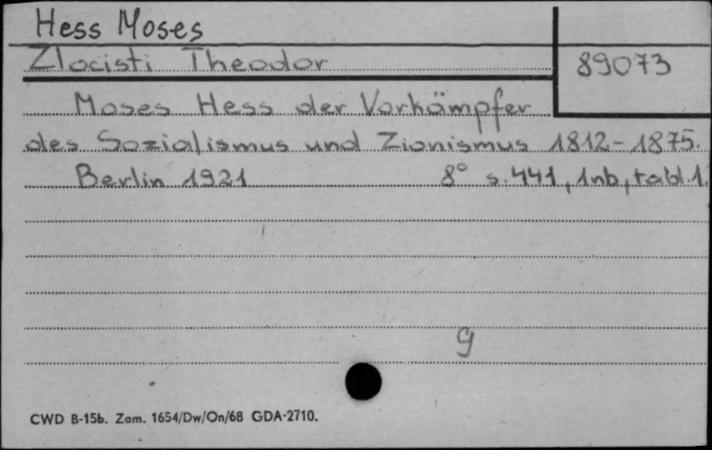 Hess Moses
Zlocisti Theodor
89073
Moses Hess der Vorkämpfer
des Sozialismus und Zionismus 1812-1875.
Berlin 1921 8° s. 441, 1nb, tabl. 1.
g
CWD B-15b. Zam. 1654/Dw/On/68 GDA-2710.